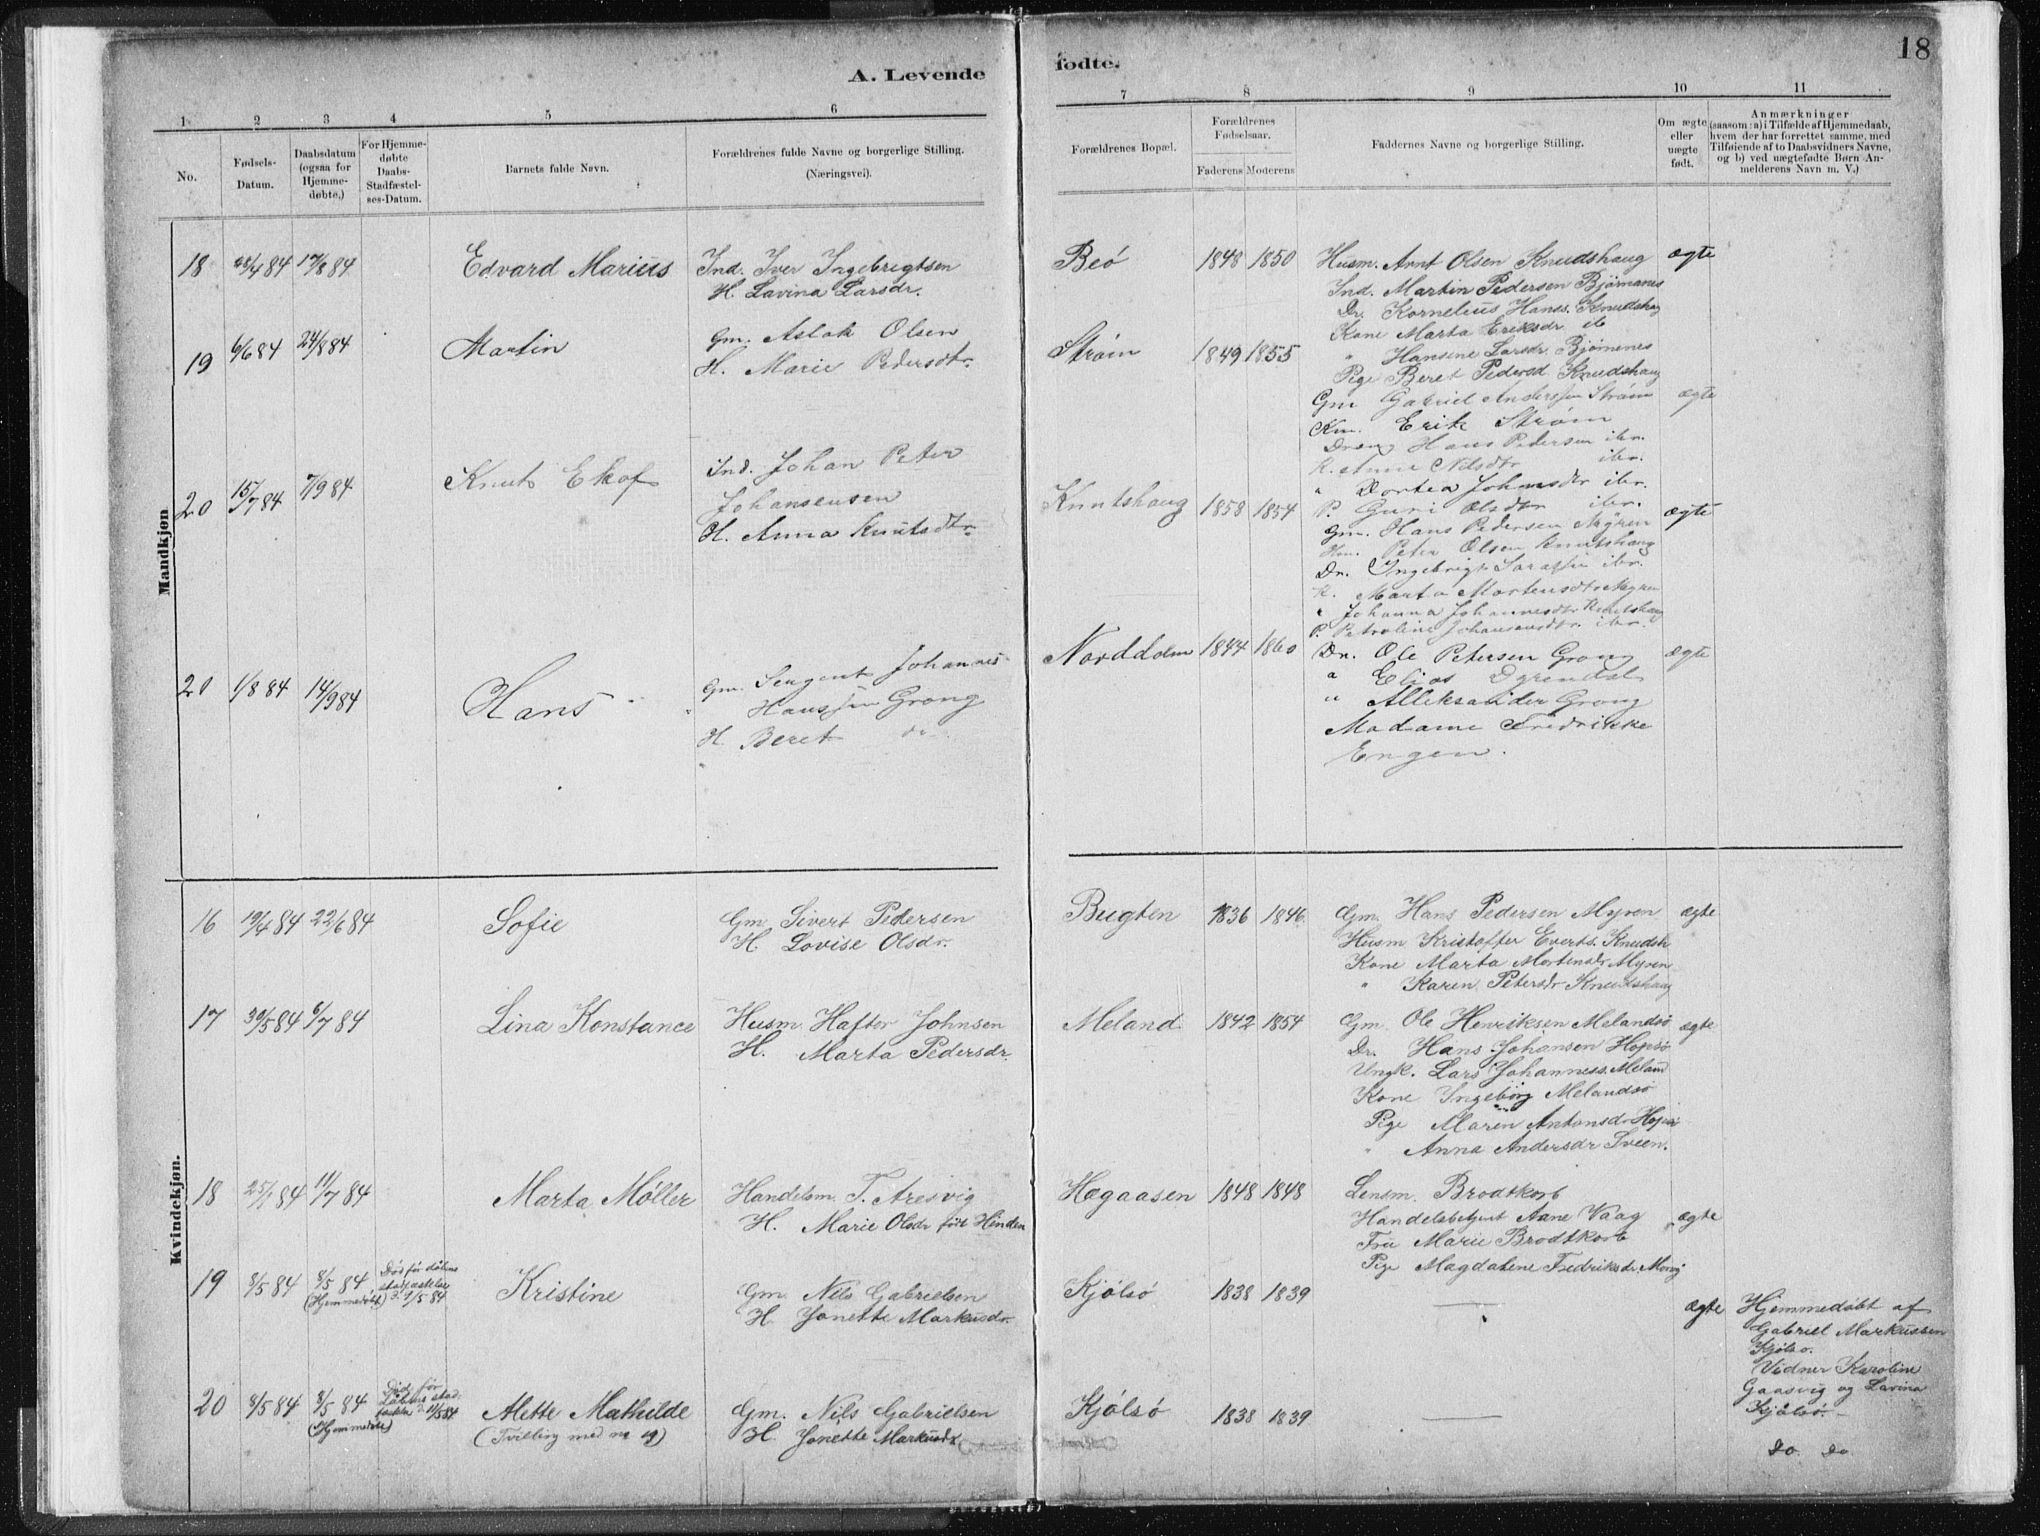 A. Levende
fødte.
18
1 2 3 4 5 6 7 8 9 10 11
No.
Fødsels-Datum.
Daabsdatum (ogsaa for Hjemme-døbte.)
For Hjemme-døbte Daabs-Stadfæstel-ses-Datum.
Barnets fulde Navn.
Forældrenes fulde Navne og borgerlige Stilling. (Næringsvei).
Forældrenes Bopæl.
Forældrenes Fødselsaar.
Faderens Moderens
Faddernes Navne og borgerlige Stilling.
Om ægte eller uægte født.
Anmærkninger (saasom: a) i Tilfælde af Hjemmedaab, hvem der har forrettet samme, med Tilføiende af to Daabsvidners Navne, og b) ved uægtefødte Børn An-melderens Navn m. V.)
Mandkjøn
18 28/4 84 17/8 84 Edvard Marius Ind. Iver Ingebrigtsen
H. Lavina Larsdr.
Beö 1848 1850 Husm. Arnt Olsen Knudshaug ægte
Ind. Martin Pedersen Bjørnanes
Dr. Kornelius Hans. Knudshaug
Kone Marta Eriksdr ib
" Hansine Larsdr. Bjørnenes
Pige Beret Pedersd. Knudshaug
19 6/6 84 24/8 84 Martin Gm. Aslak Olsen
H. Marie Pedersdtr.
Strøm 1849 1855
Gm Gabriel Anderssen Strøm ægte
Km. Erik Strøm
Dreng Hans Pedersen ibr.
K. Anne Nilsdtr ibr.
" Dortea Johnsdtr ibr.
P. Guri Olsdtr ibr.
20 15/7 84 7/9 84 Knut Ekof Ind. Johan Peter
Johansensen
H. Anna Knutsdtr.
Knutshaug 1858 1854 ægte
Gm. Hans Pedersen Myren
Peter Olsen Knutshaug
Dr. Ingebrigt ibr.
K. Marta Mortensdtr Myren
" Johanna Johannesdtr Knutshaug
P. Petroline Johansensdtr. ibr.
20 1/8 84 14/9 84 Hans Gm. Sergent Johannes
" Hanssen Grong
H. Beret do
Norddolm 1844 1860 Dr. Ole Petersen Grong ægte
" Elias Dyrendal
" Alleksander Grong
Madame Fredrikke
Engen.
Kvindekjøn.
16 19/4 84 22/6 84 Sofie Gm. Sivert Pedersen
H. Lovise Olsdr.
Bugten 1836 1846 Gm. Hans Pedersen Myren ægte
Husm Kristoffer Everts. Knudsh
Kone Marta Mortensdr Myren
" Karen Petersdr Knudshaug
17 30/5 84 6/7 84 Lina Konstance Husm Haftor Johnsen
H. Marta Pedersdr.
Meland 1842 1854 Gm. Ole Henriksen Melandsö ægte
Dr. Hans Johansen Hopsö
Ungk. Lars Johanness. Meland
Kone Ingeborg Melandsö
Pige Maren Antonsdr Hopsö
" Anna Andersdr Sveen.
18 25/1 84 11/7 84 Marta Møller Handelsm. T. Aresvig
H. Marie Olsdr född Hinden
Hægaasen 1848 1848 Lensm. Brodtkorb
Handelsbetjent Aane Vaag ægte
Fru Marie Brodtkorb
Pige Magdalene Fredriksdr.
19 8/5 84 8/5 84 (Hjemmedöbt) Död før dåbens stadfæstelse d. 9/5 84 Kristine Gm. Nils Gabrielsen
H. Jonette Markusdr.
Kjölsö 1838 1839 — ægte Hjemmedöbt af
Gabriel Markussen
Kjölsö.
Vidner Karoline
Gaasvig og Lavina
Kjölsö.
20 8/5 84 8/5 84 (Hjemmedöbt) Död før dåbens stadfæstelse d. 11/5 84 Alette Mathilde Gm. Nils Gabrielsen
(Tvilling med no 19) H. Jonette Markusdr
Kjölsö 1838 1839 — Do. Do.